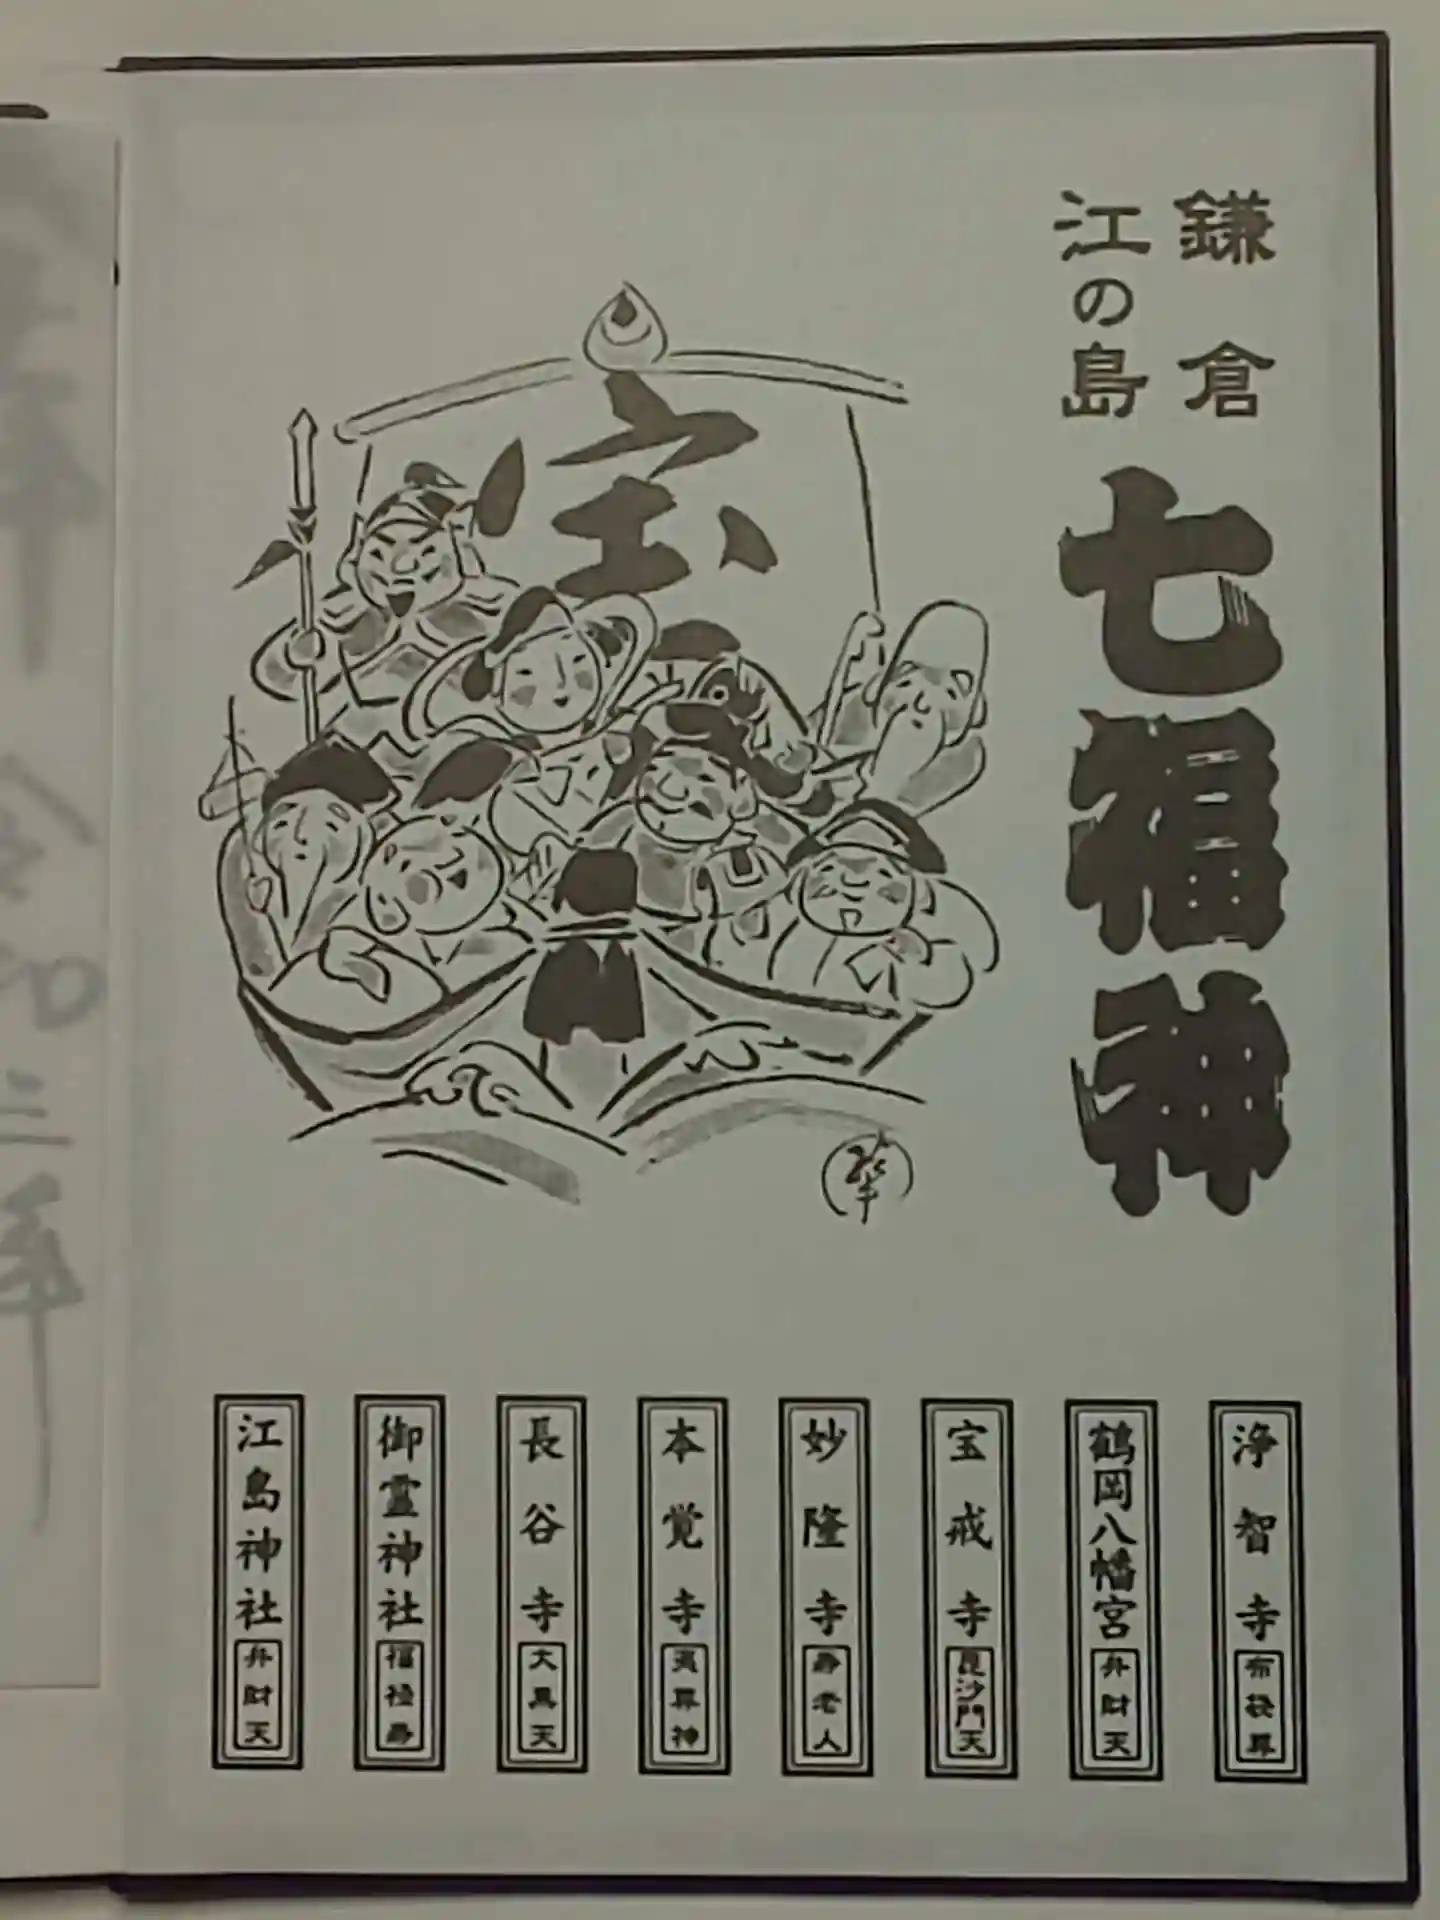 鎌倉
江の島
七福神
宝
浄智寺 布袋尊
鶴岡八幡宮 弁財天
宝戒寺 毘沙門天
妙隆寺 寿老人
本覚寺 夷尊神
長谷寺 大黒天
御霊神社 福禄寿
江島神社 弁財天